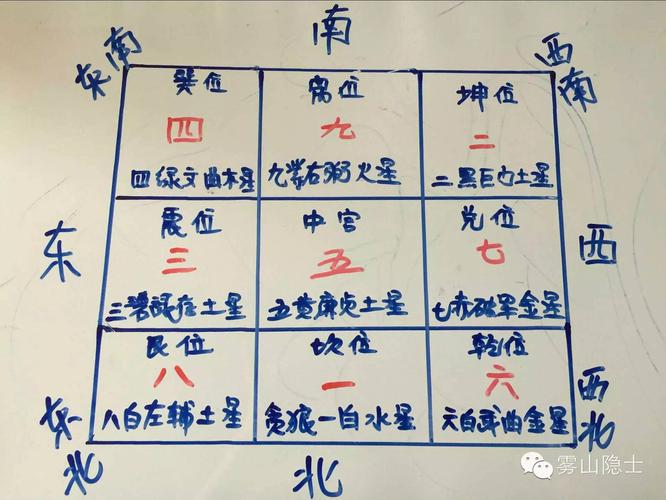 南
东南
西南
巽位
离位
坤位
四
九
二
四绿文曲木星
九紫右弼火星
二黑巨门土星
东
西
震位
中宫
兑位
三
五
七
三碧禄存土星
五黄廉贞土星
七赤破军金星
艮位
坎位
乾位
八
一
六
八白左辅土星
贪狼一白水星
六白武曲金星
东北
北
西北
雾山隐士